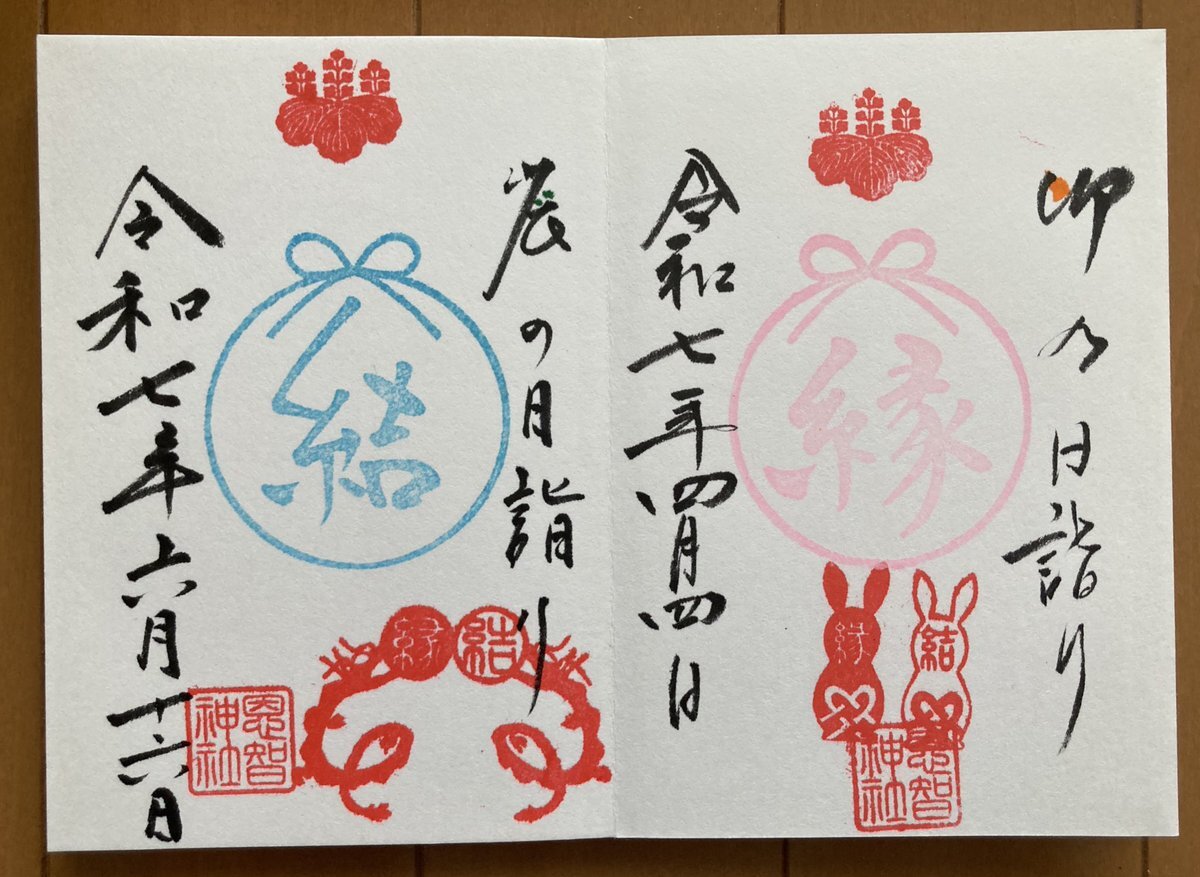 卯乃日詣り
縁
縁 結
恩智神社
令和七年四月四日
辰の月詣り
結
縁 結
恩智神社
令和七年六月十六日